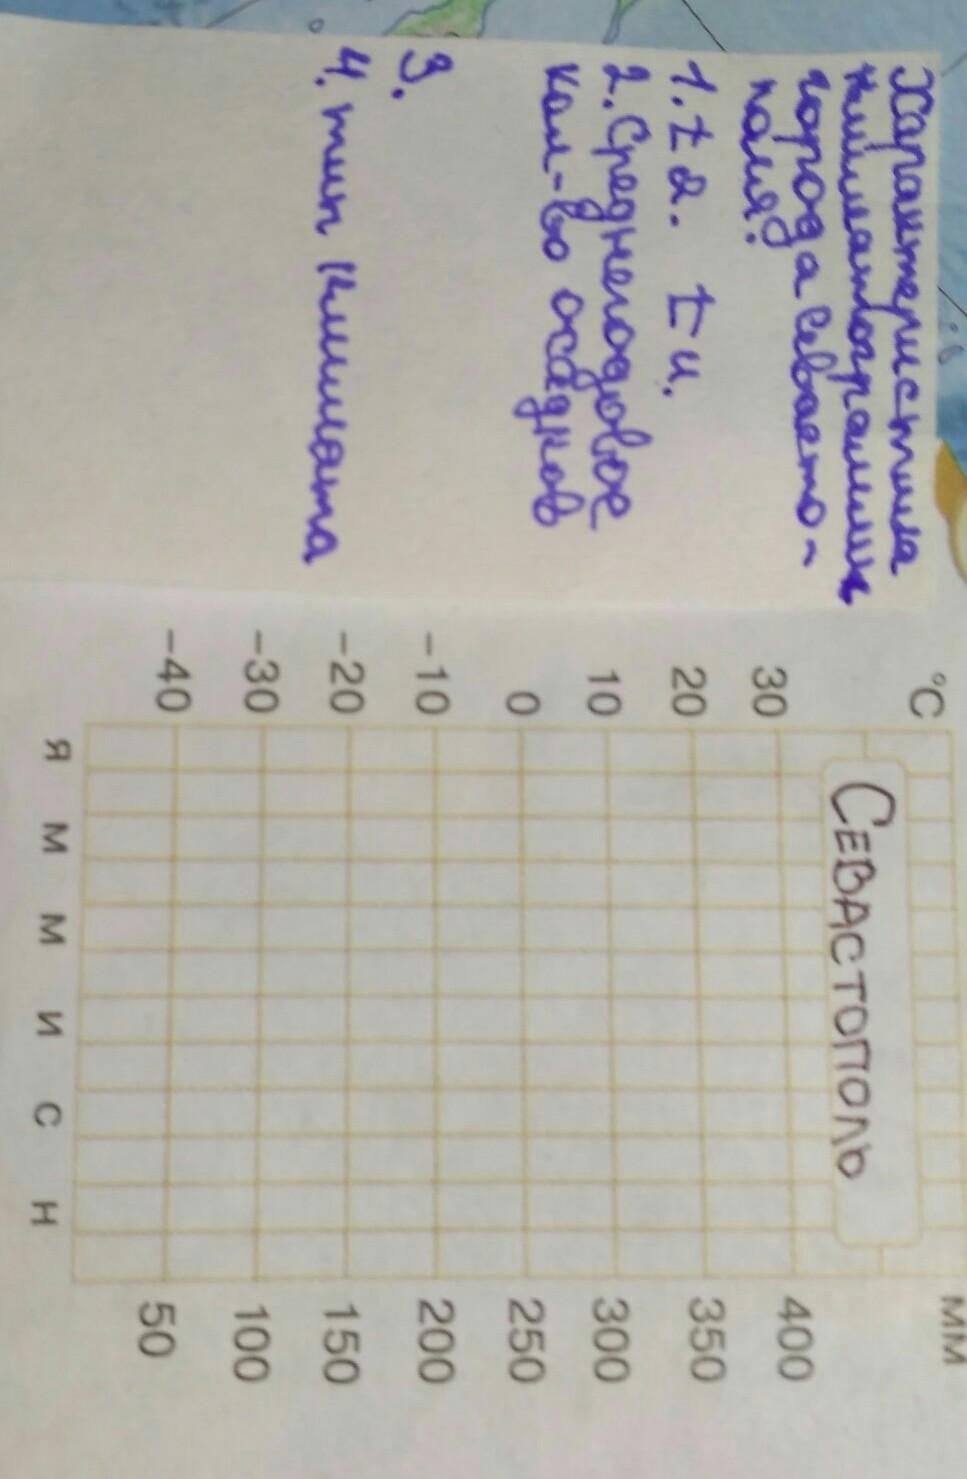 Характеристика
климатограммы
города Севасто-
поля:
1. t я. t и.
2. Среднегодовое
кол-во осадков
3.
4. тип климата
°C
мм
СЕВАСТОПОЛЬ
30
400
20
350
10
300
0
250
-10
200
-20
150
-30
100
-40
50
Я М М И С Н